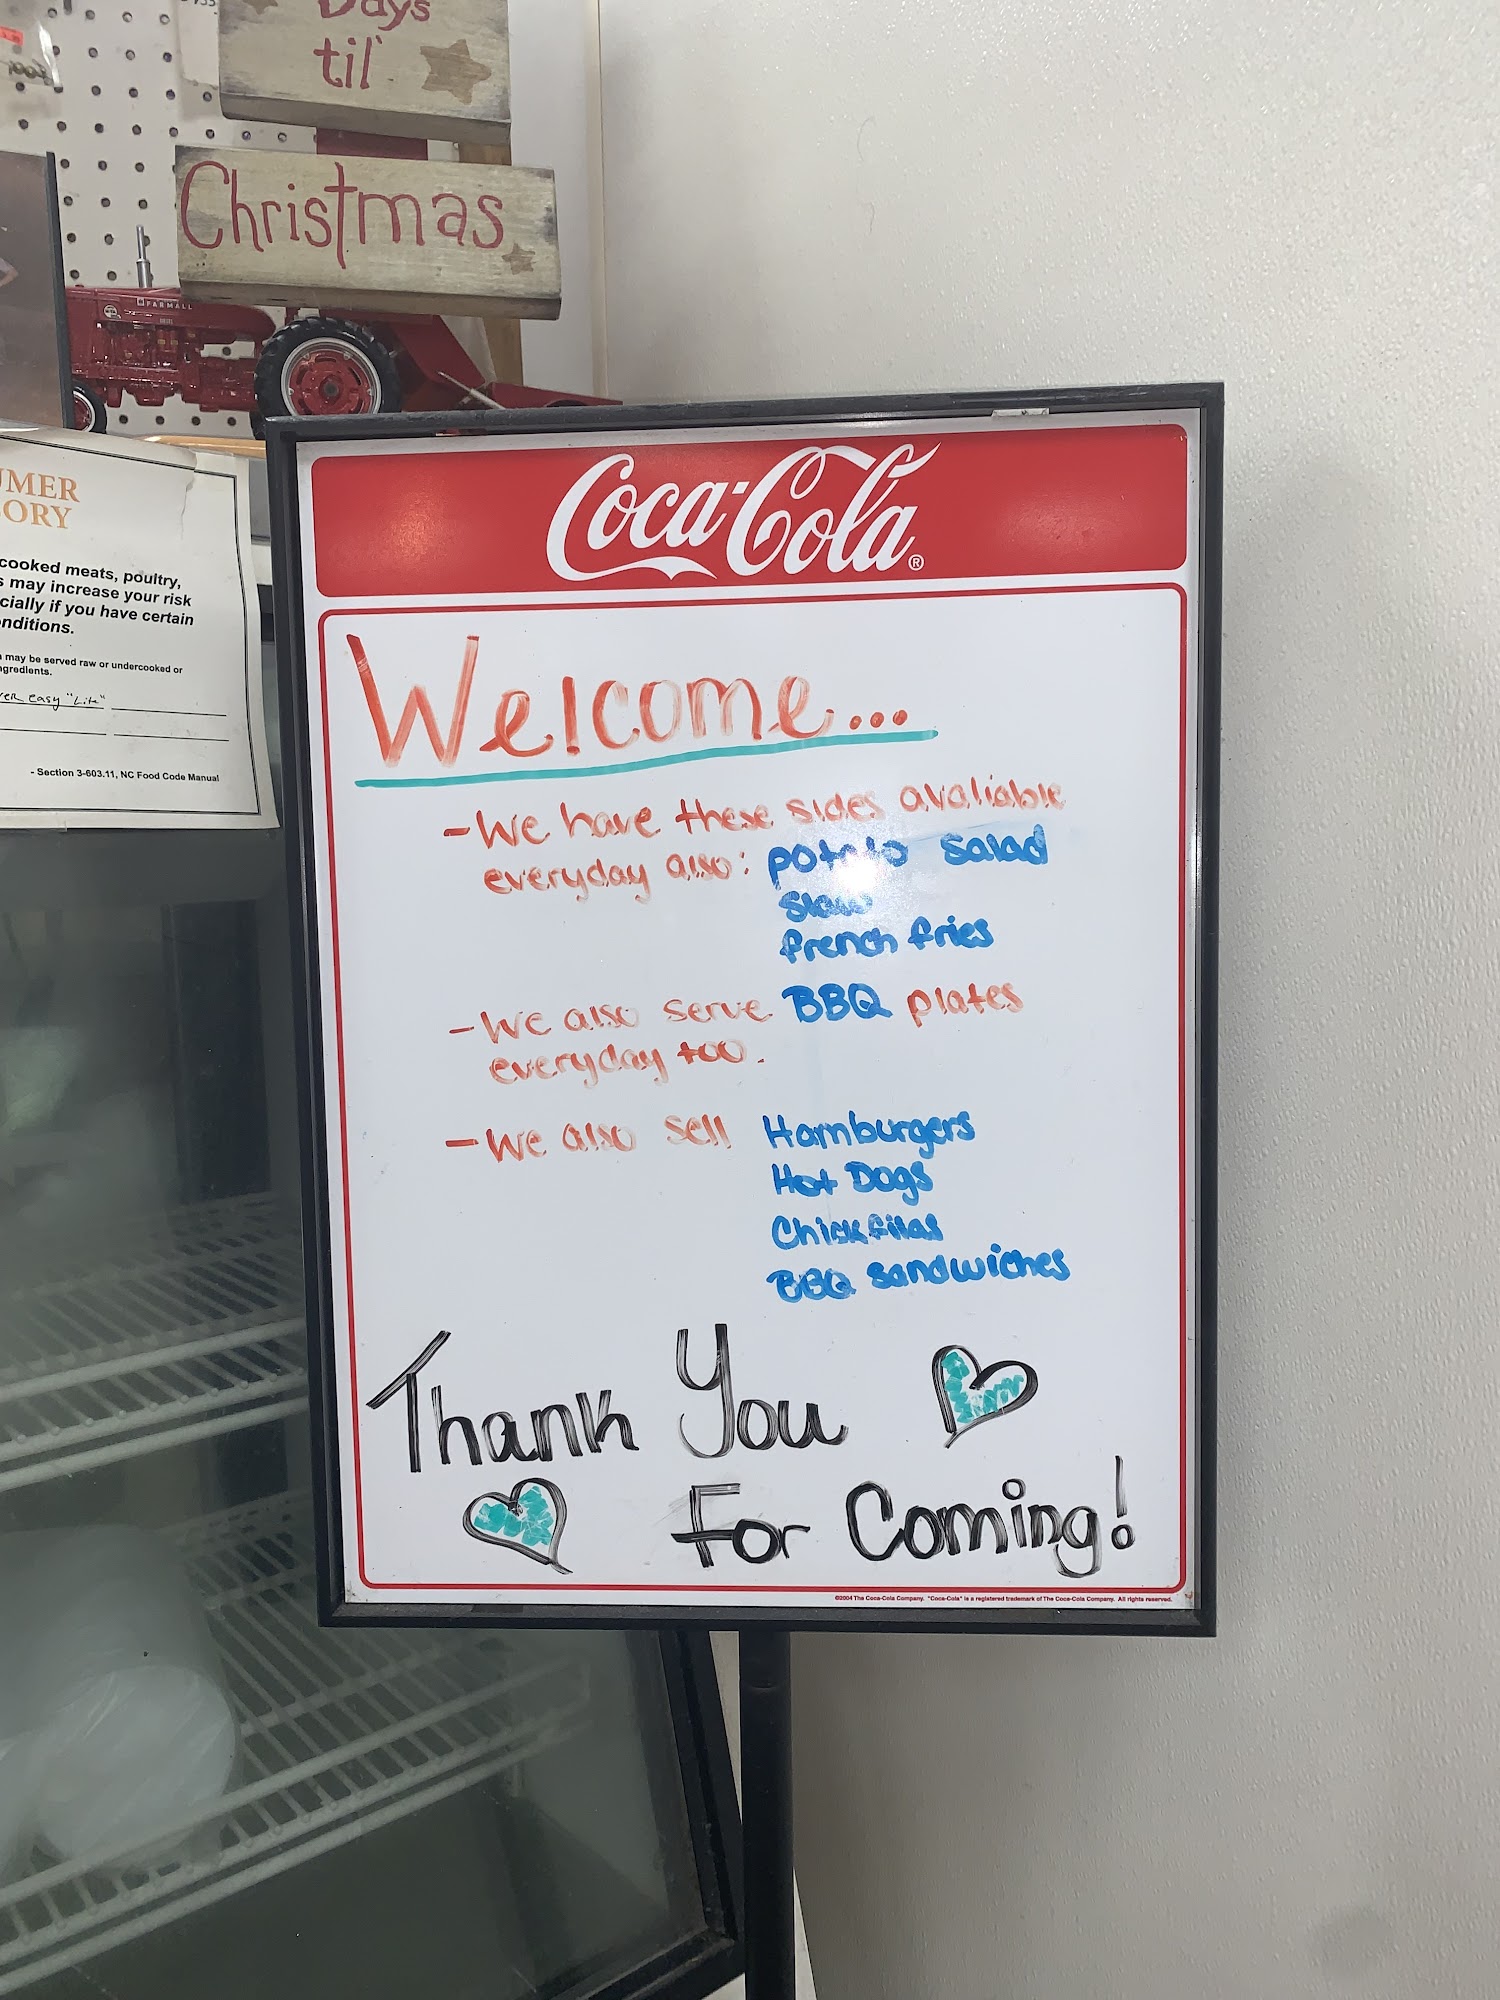 Days
til'
Christmas
FARMALL
UMER
ORY
cooked meats, poultry,
s may increase your risk
cially if you have certain
onditions.
may be served raw or undercooked or
ngredients.
ver easy "Lite"
- Section 3-603.11, NC Food Code Manual
Coca-Cola®
Welcome...
- We have these sides avaliable
everyday also: potato salad
slaw
french fries
- We also serve BBQ plates
everyday too.
- We also sell Hamburgers
Hot Dogs
Chickfilas
BBQ sandwiches
Thank You
For Coming!
©2004 The Coca-Cola Company. "Coca-Cola" is a registered trademark of The Coca-Cola Company. All rights reserved.